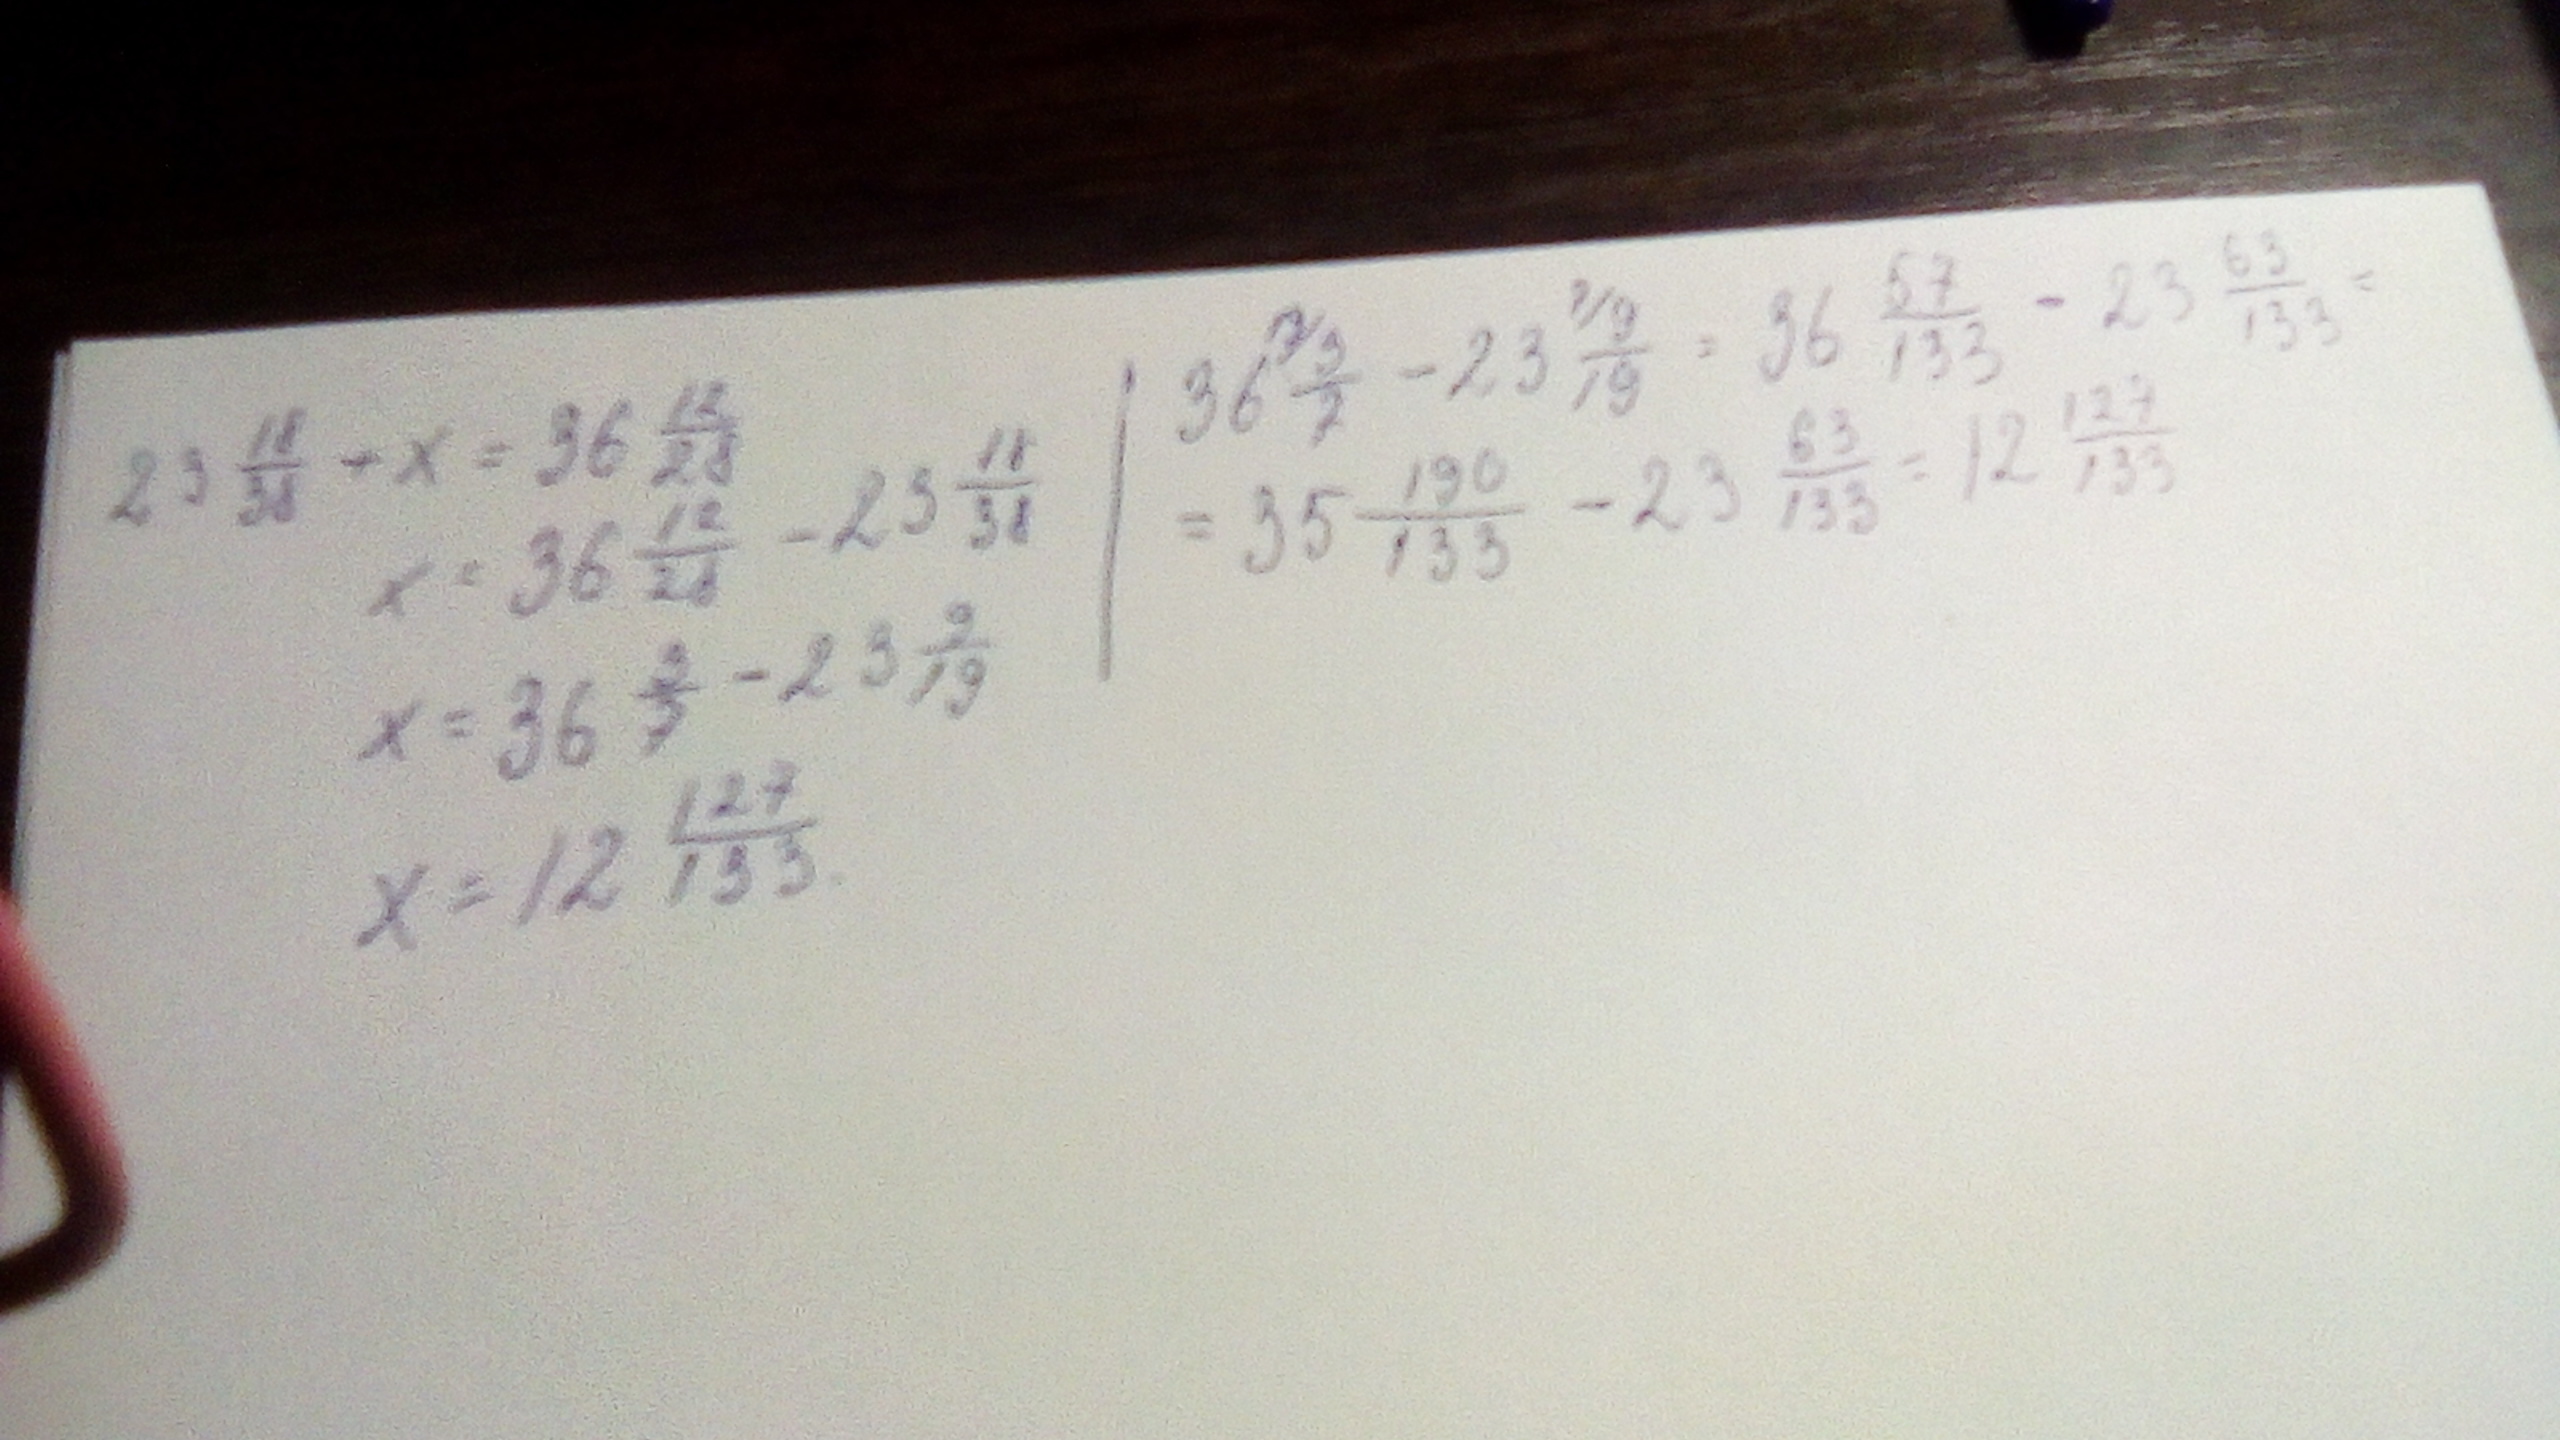 23 18/38 + x = 36 12/28
x = 36 12/28 - 23 18/38
x = 36 3/7 - 23 9/19
x = 12 127/133.
36 3/7 - 23 9/19 = 36 57/133 - 23 63/133 =
= 35 190/133 - 23 63/133 = 12 127/133